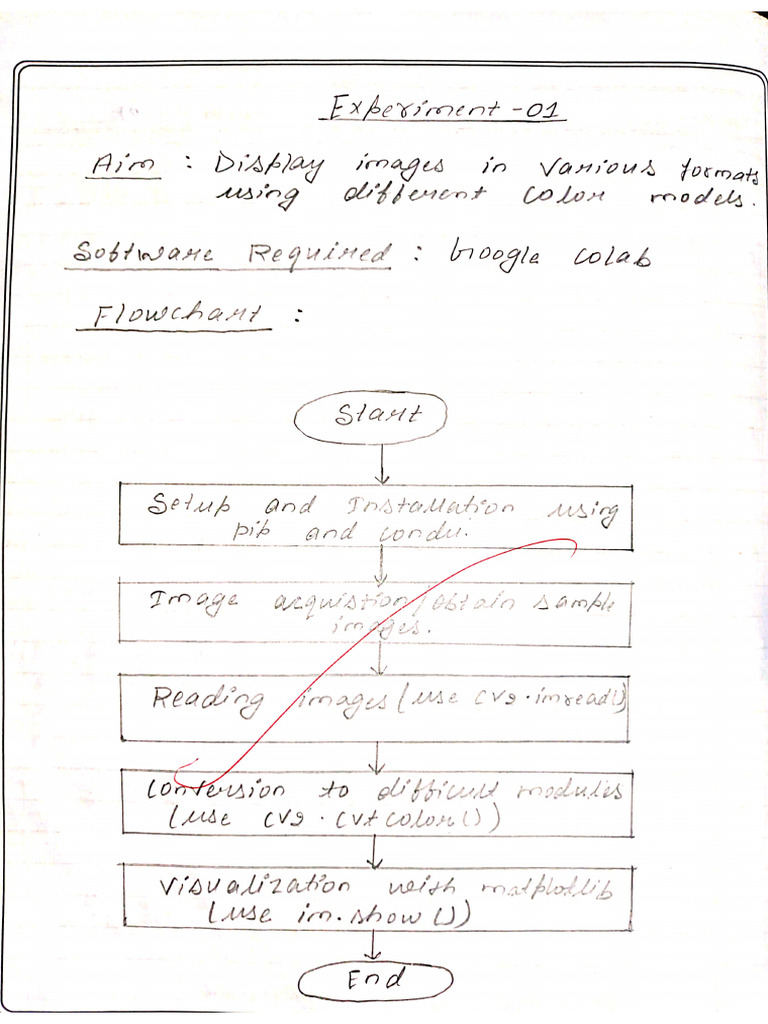 Experiment-01
Aim : Display images in various formats
using different color models.
Software Required : Google colab
Flowchart :
Start
Setup and Installation using
pip and condu.
Image acquistion/obtain sample
images.
Reading images (use cv2.imread()
Conversion to difficult modules
(use cv2.cvtcolor())
Visualization with matplotlib
(use im.show())
End